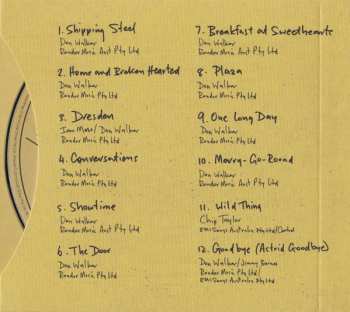 1. Shipping Steel
Don Walker
Rondor Music Aust Pty Ltd
2. Home and Broken Hearted
Don Walker
Rondor Music Pty Ltd
3. Dresden
Ian Moss / Don Walker
Rondor Music Pty Ltd
4. Conversations
Don Walker
Rondor Music Pty Ltd
5. Showtime
Don Walker
Rondor Music Aust Pty Ltd
6. The Door
Don Walker
Rondor Music Pty Ltd
7. Breakfast at Sweethearts
Don Walker
Rondor Music Aust Pty Ltd
8. Plaza
Don Walker
Rondor Music Pty Ltd
9. One Long Day
Don Walker
Rondor Music Pty Ltd
10. Merry-Go-Round
Don Walker
Rondor Music Pty Ltd
11. Wild Thing
Chip Taylor
EMI Songs Australia Pty Ltd/Control
12. Goodbye (Astrid Goodbye)
Don Walker/Jimmy Barnes
Rondor Music Pty Ltd/
EMI Songs Australia Pty Ltd